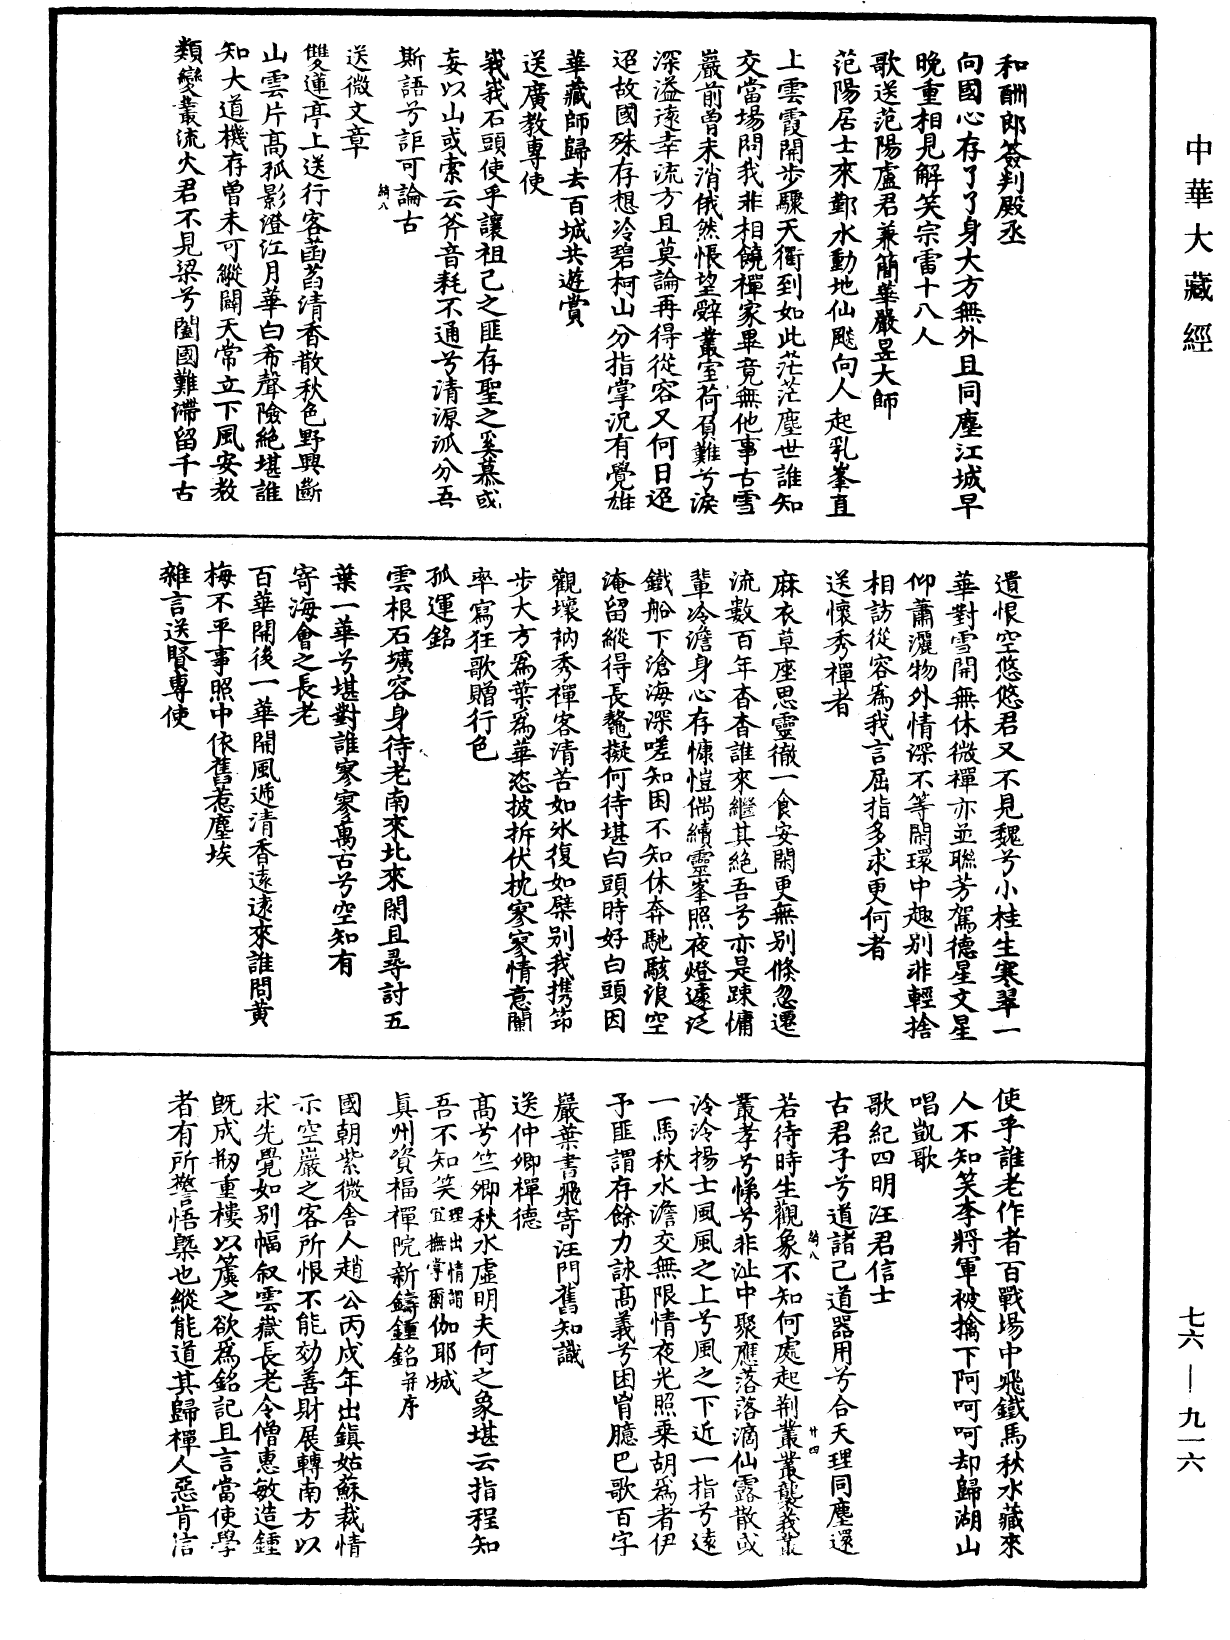 中華大藏經
和酬郎簽判殿丞
向國心存了了身大方無外且同塵江城早
晚重相見解笑宗雷十八人
歌送范陽盧君兼簡華嚴昱大師
范陽居士來鄞水動地仙飈向人起乳峯直
上雲霞開步驟天衢到如此茫茫塵世誰知
交當場問我非相饒禪家畢竟無他事古雪
巖前曾未消俄然悵望辭叢室荷負難兮淚
深溢遠幸流方且莫論再得從容又何日迢
迢故國殊存想冷碧柯山分指掌況有覺雄
華藏師歸去百城共遊賞
送廣教專使
峩峩石頭使乎讓祖己之匪存聖之奚慕或
妄以山或索云斧音耗不通兮清源派分吾
斯語兮詎可論古
綺八
送微文章
雙蓮亭上送行客菡萏清香散秋色野興斷
山雲片高孤影澄江月華白希聲險絕堪誰
知大道機存曾未可縱闢天常立下風安教
類變叢流火君不見梁兮闔國難滯留千古
遺恨空悠悠君又不見魏兮小桂生寒翠一
華對雪開無休微禪亦並聯芳駕德星文星
仰蕭灑物外情深不等閑環中趣別非輕捨
相訪從容為我言屈指多求更何者
送懷秀禪者
麻衣草座思靈徹一食安閑更無別倏忽遷
流數百年杳杳誰來繼其絕吾兮亦是踈慵
輩冷澹身心存慷愷偶續靈峯照夜燈遽泛
鐵船下滄海深嗟知因不知休奔馳駭浪空
淹留縱得長鼇擬何待堪白頭時好白頭因
觀壞衲秀禪客清苦如氷復如檗別我攜笻
步大方為葉為華恣披拆伏枕寥寥情意闌
率寫狂歌贈行色
孤運銘
雲根石壙容身待老南來北來閑且尋討五
葉一華兮堪對誰寥寥萬古兮空知有
寄海會之長老
百華開後一華開風遞清香遠遠來誰問黃
梅不平事照中依舊惹塵埃
雜言送賢專使
使乎誰老作者百戰場中飛鐵馬秋水藏來
人不知笑李將軍被擒下阿呵呵却歸湖山
唱凱歌
歌紀四明汪君信士
古君子兮道諸己道器用兮合天理同塵還
若待時生觀象不知何處起荆叢叢襲義叢
綺八
廿四
叢孝兮悌兮非沚中聚應落落滴仙露散或
泠泠揚士風風之上兮風之下近一指兮遠
一馬秋水澹交無限情夜光照乘胡為者伊
予匪謂存餘力詠高義兮困胷臆巴歌百字
嚴葉書飛寄汪門舊知識
送仲卿禪德
高兮竺卿秋水虛明夫何之象堪云指程知
吾不知笑理出情謂宜撫掌爾伽耶城
真州資福禪院新鑄鍾銘并序
國朝紫微舍人趙公丙戌年出鎮姑蘇裁情
示空巖之客所恨不能効善財展轉南方以
求先覺如別幅叙雲嶽長老令僧惠敏造鍾
既成扨重樓以簴之欲為銘記且言當使學
者有所警悟槩也縱能道其歸禪人惡肯信
七六—九一六